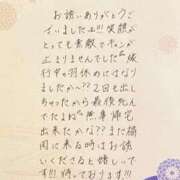 お誘いありがとうござ
いました!!! 笑顔が
とても素敵でキュンが
止まりませんでした 旅
行中の羽休めにはなり
ましたか〜?? 2回も出し
ちゃったから最後死ん
でたよね 無事帰宅
出来たかな?? また福
岡に来る時はお誘
いくださると嬉しいで
す!!! 待っております!!!